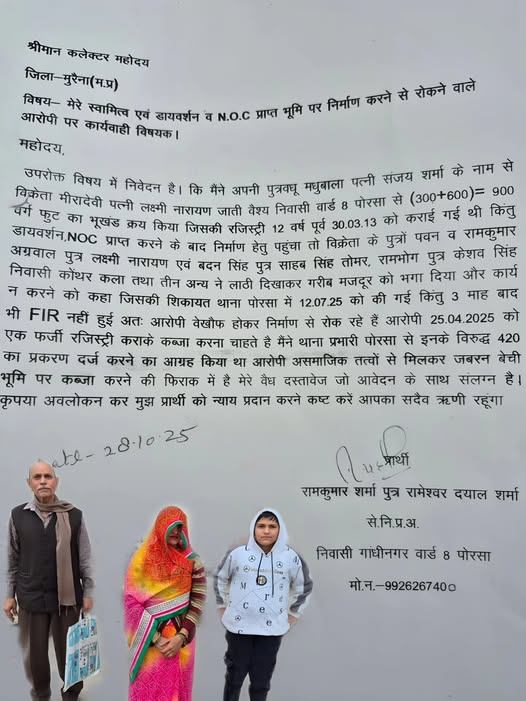 श्रीमान कलेक्टर महोदय
जिला–मुरैना(म.प्र)
विषय– मेरे स्वामित्व एवं डायवर्शन व N.O.C प्राप्त भूमि पर निर्माण करने से रोकने वाले
आरोपी पर कार्यवाही विषयक।
महोदय,
उपरोक्त विषय में निवेदन है। कि मैंने अपनी पुत्रवधू मधुबाला पत्नी संजय शर्मा के नाम से
विक्रेता मीरादेवी पत्नी लक्ष्मी नारायण जाती वैश्य निवासी वार्ड 8 पोरसा से (300+600)= 900
वर्ग फुट का भूखंड क्रय किया जिसकी रजिस्ट्री 12 वर्ष पूर्व 30.03.13 को कराई गई थी किंतु
डायवर्शन,NOC प्राप्त करने के बाद निर्माण हेतु पहुंचा तो विक्रेता के पुत्रों पवन व रामकुमार
अग्रवाल पुत्र लक्ष्मी नारायण एवं बदन सिंह पुत्र साहब सिंह तोमर, रामभोग पुत्र केशव सिंह
निवासी कोंथर कला तथा तीन अन्य ने लाठी दिखाकर गरीब मजदूर को भगा दिया और कार्य
न करने को कहा जिसकी शिकायत थाना पोरसा में 12.07.25 को की गई किंतु 3 माह बाद
भी FIR नहीं हुई अतः आरोपी वेखौफ होकर निर्माण से रोक रहे हैं आरोपी 25.04.2025 को
एक फर्जी रजिस्ट्री कराके कब्जा करना चाहते है मैंने थाना प्रभारी पोरसा से इनके विरुद्ध 420
का प्रकरण दर्ज करने का आग्रह किया था आरोपी असमाजिक तत्वो से मिलकर जबरन बेची
भूमि पर कब्जा करने की फिराक में है मेरे वैध दस्तावेज जो आवेदन के साथ संलग्न है।
कृपया अवलोकन कर मुझ प्रार्थी को न्याय प्रदान करने कष्ट करें आपका सदैव ऋणी रहूंगा
Date- 28.10.25
प्रार्थी
रामकुमार शर्मा पुत्र रामेश्वर दयाल शर्मा
से.नि.प्र.अ.
निवासी गांधीनगर वार्ड 8 पोरसा
मो.न.–9926267400